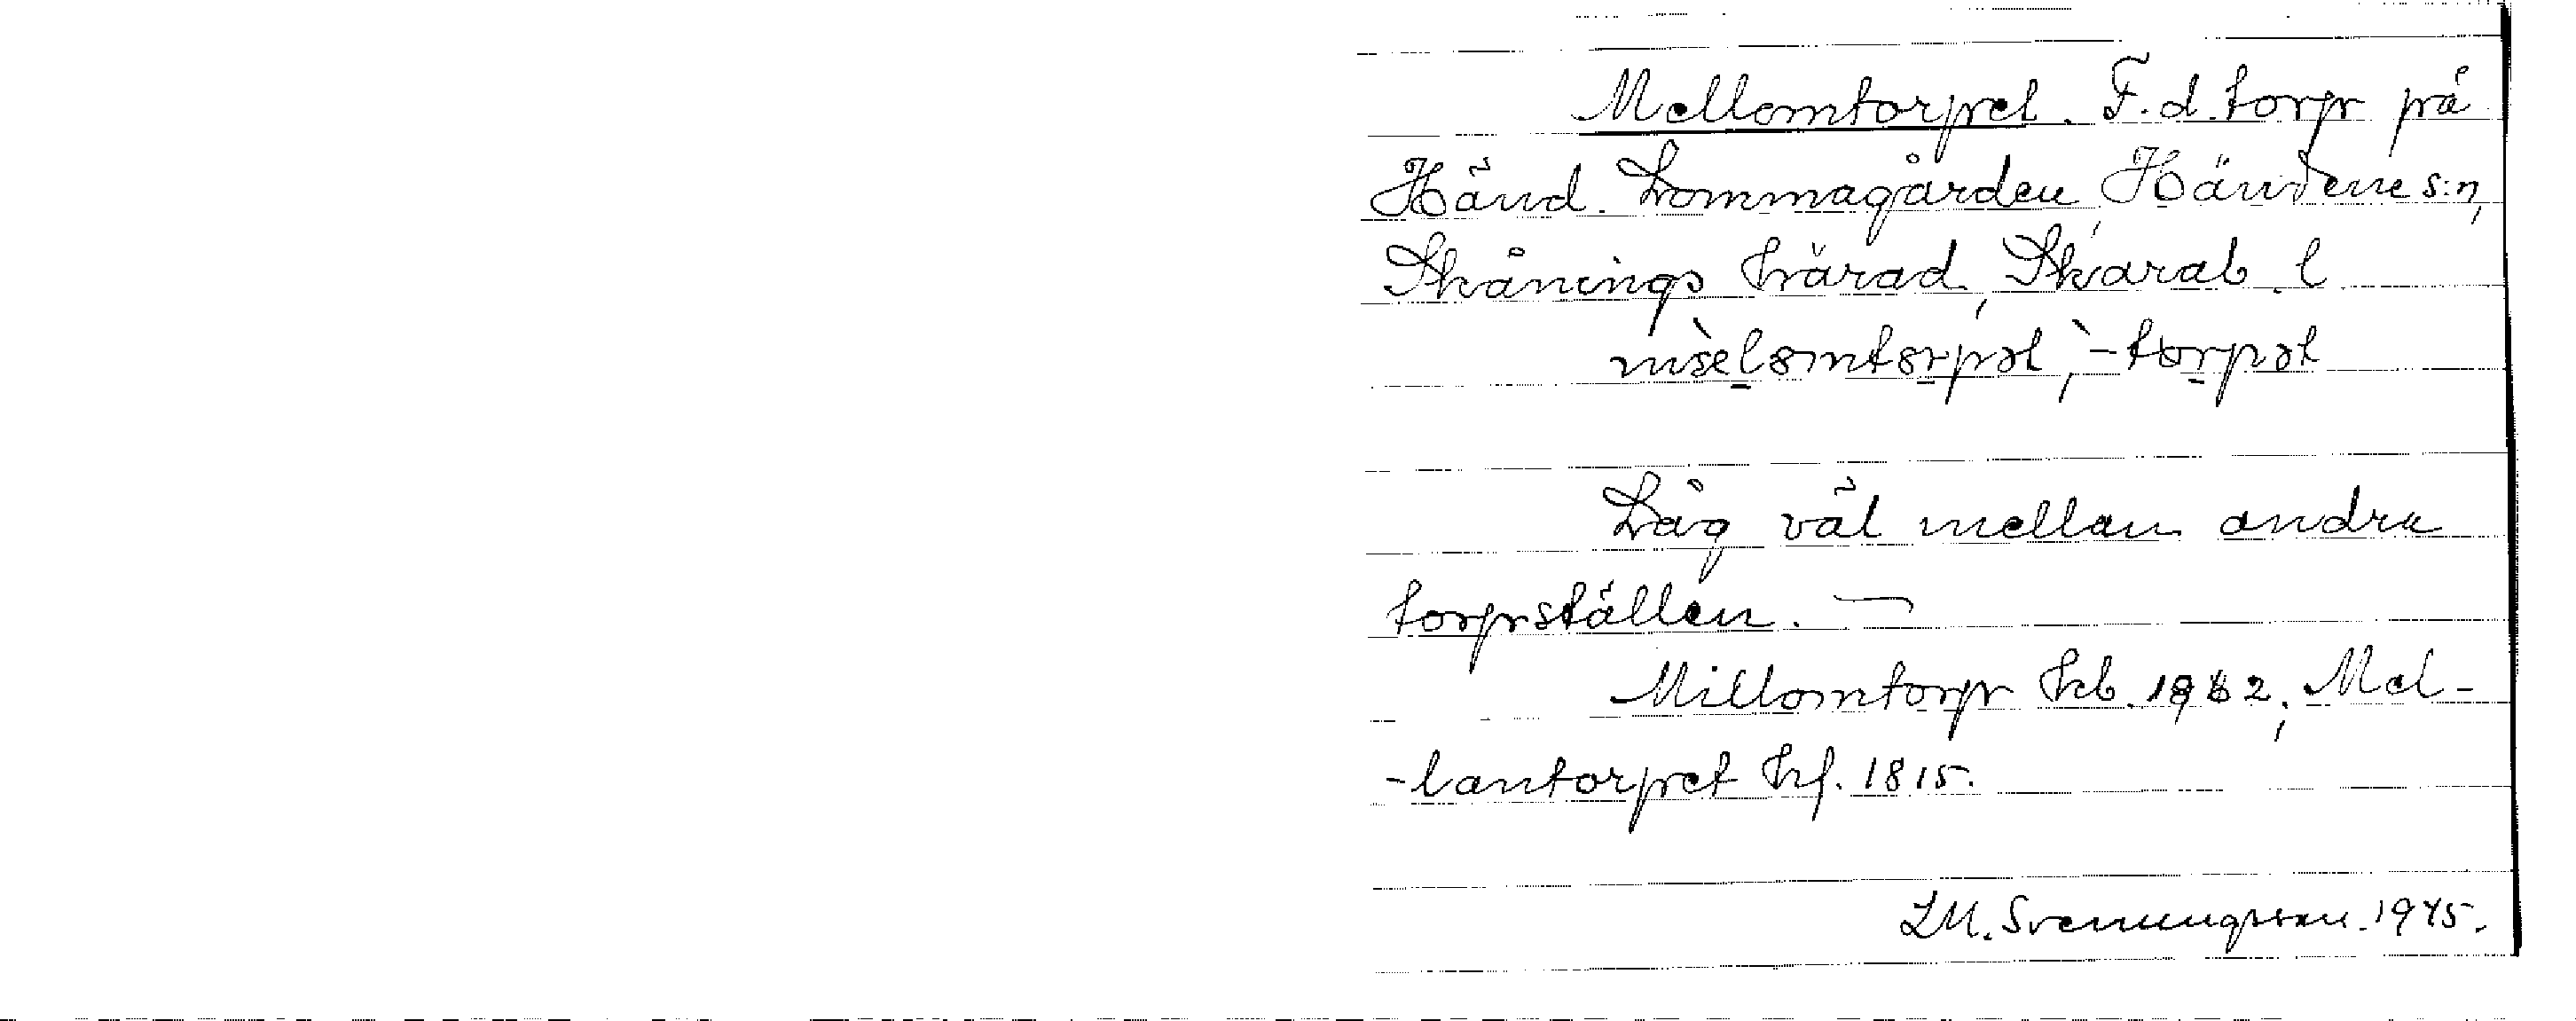 Mellomtorpet. F.d. torp på
Händ. Lommagården, Händene s:n,
Skånings härad, Skarab. l
Låg väl mellan andra
torpställen. —
Millomtorp hb. Mel-
-lantorpet hf. 1815.
LM. Svenungsson. 1945.